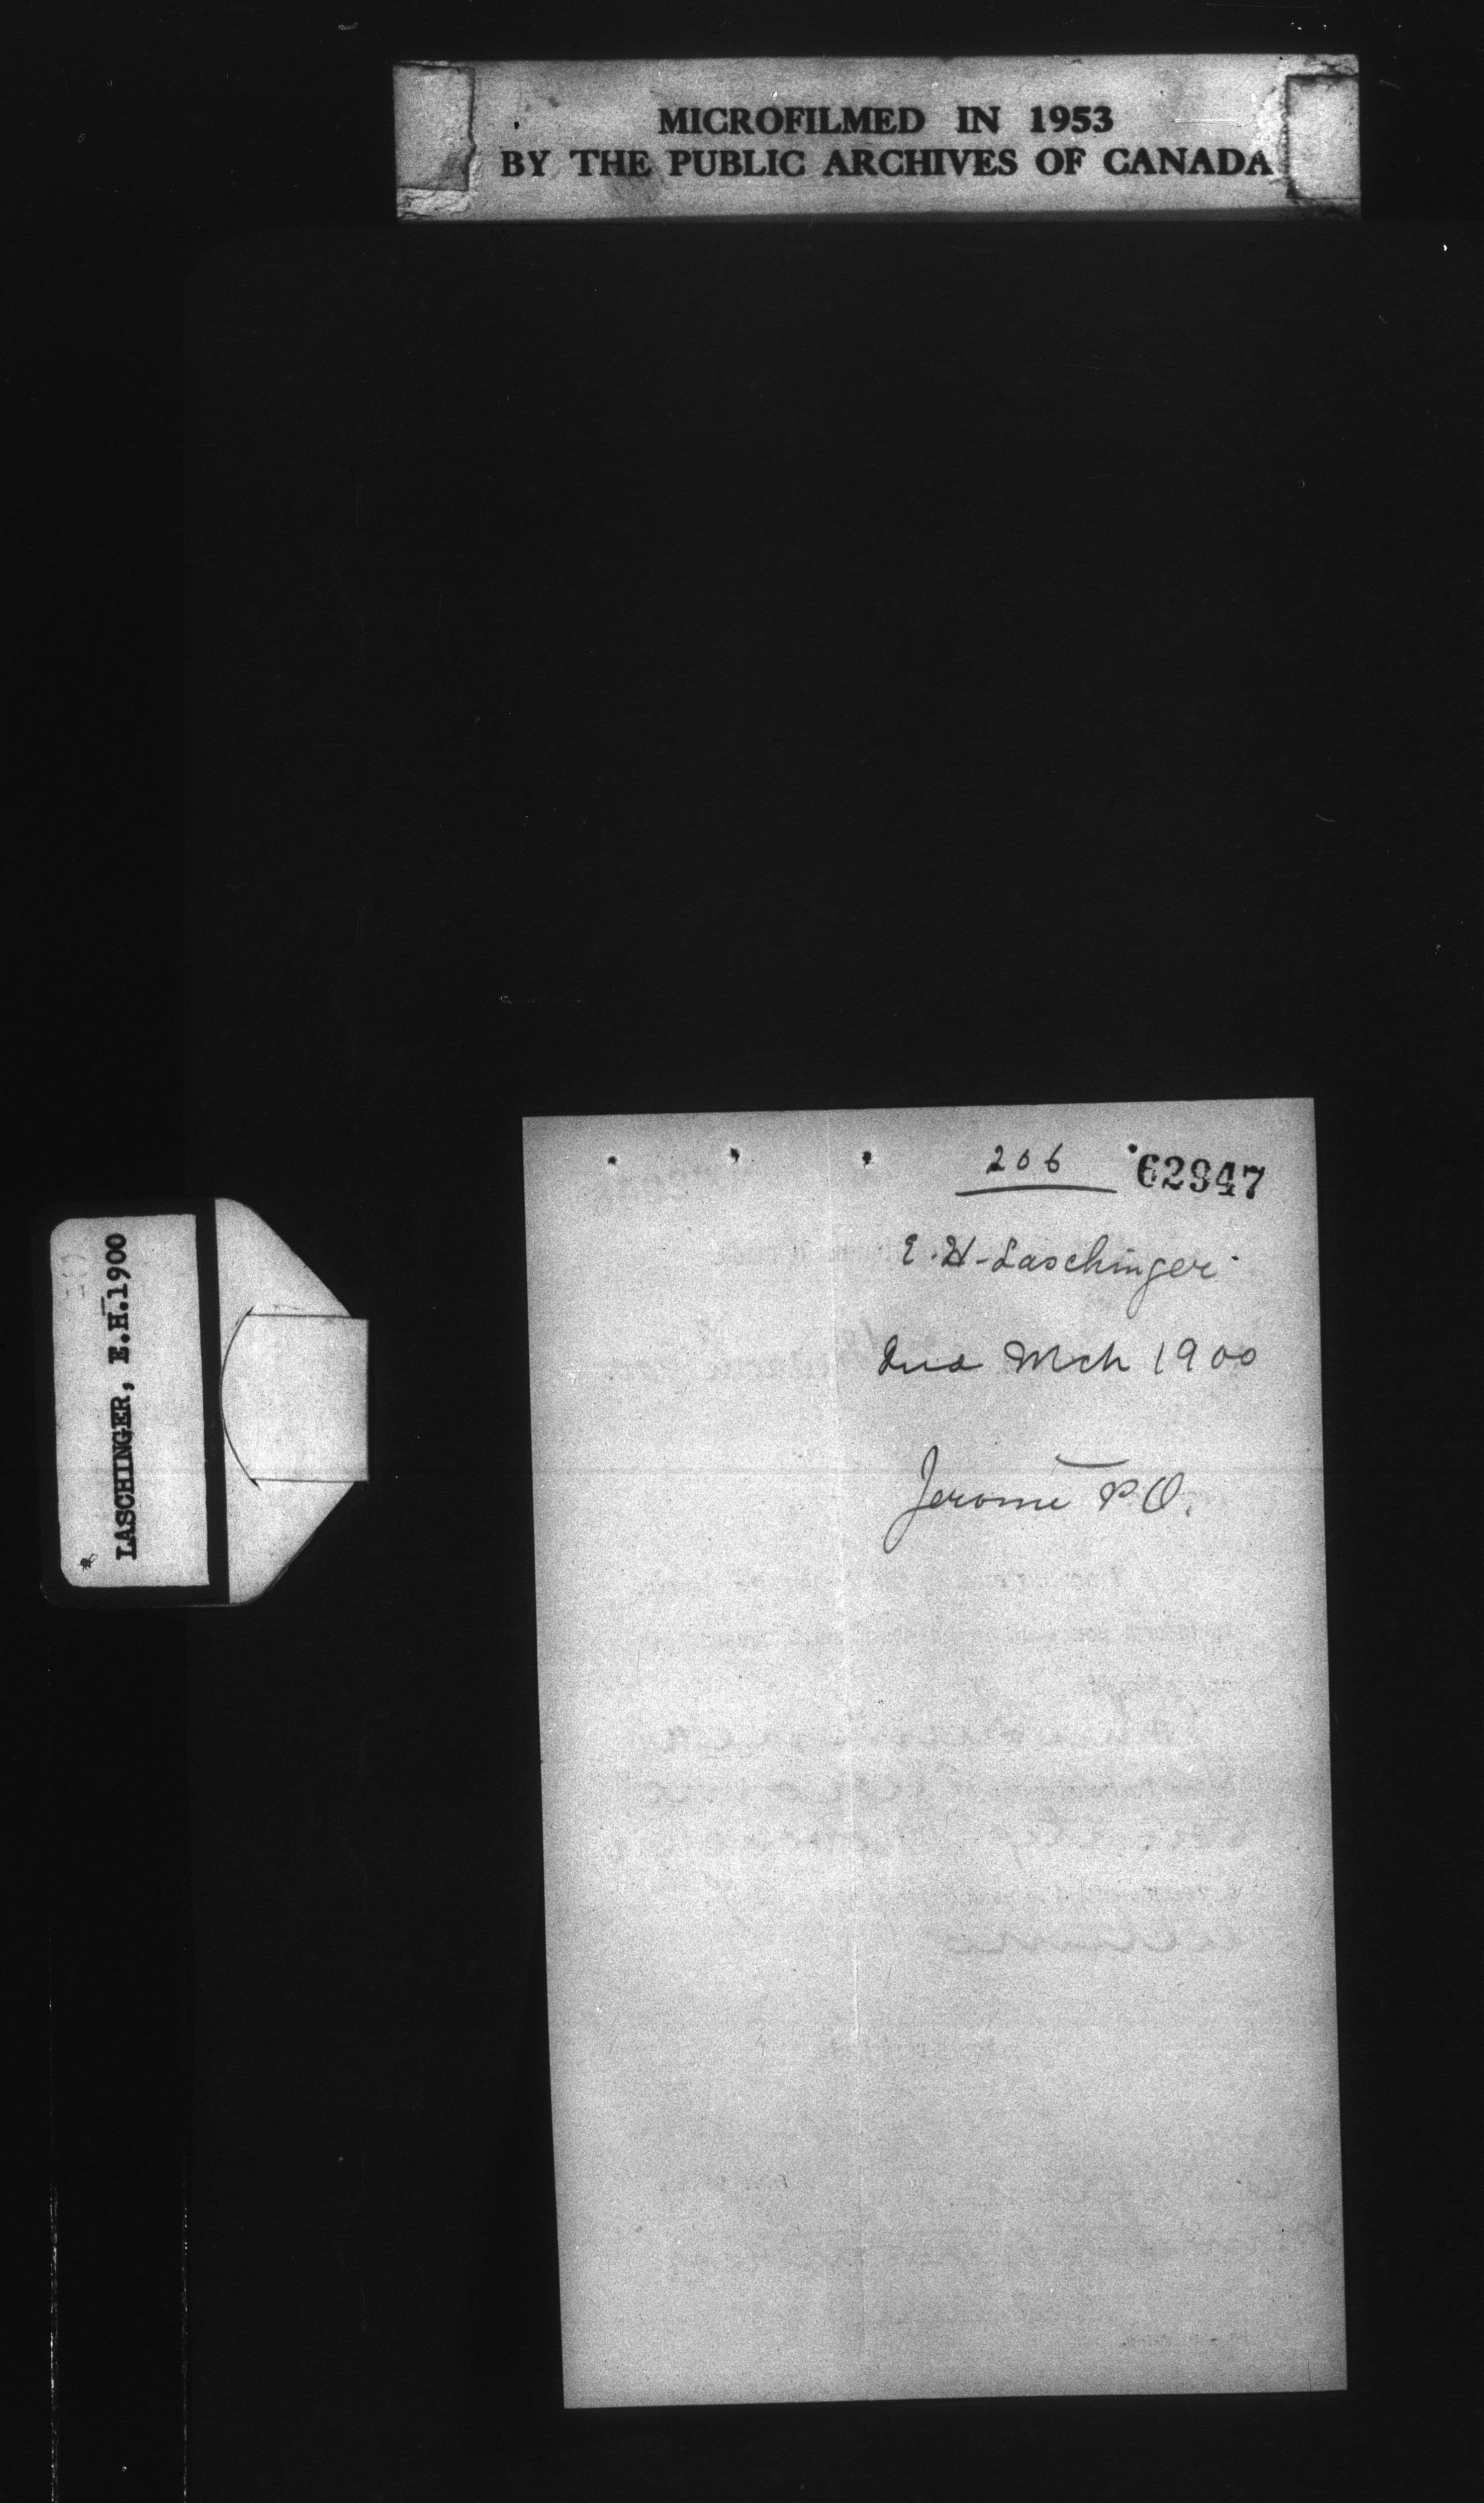 MICROFILMED IN 1953
BY THE PUBLIC ARCHIVES OF CANADA
LASCHINGER, E.H.1900
206 62947
E. H. Laschinger
Mch 1900
Jerome P O.